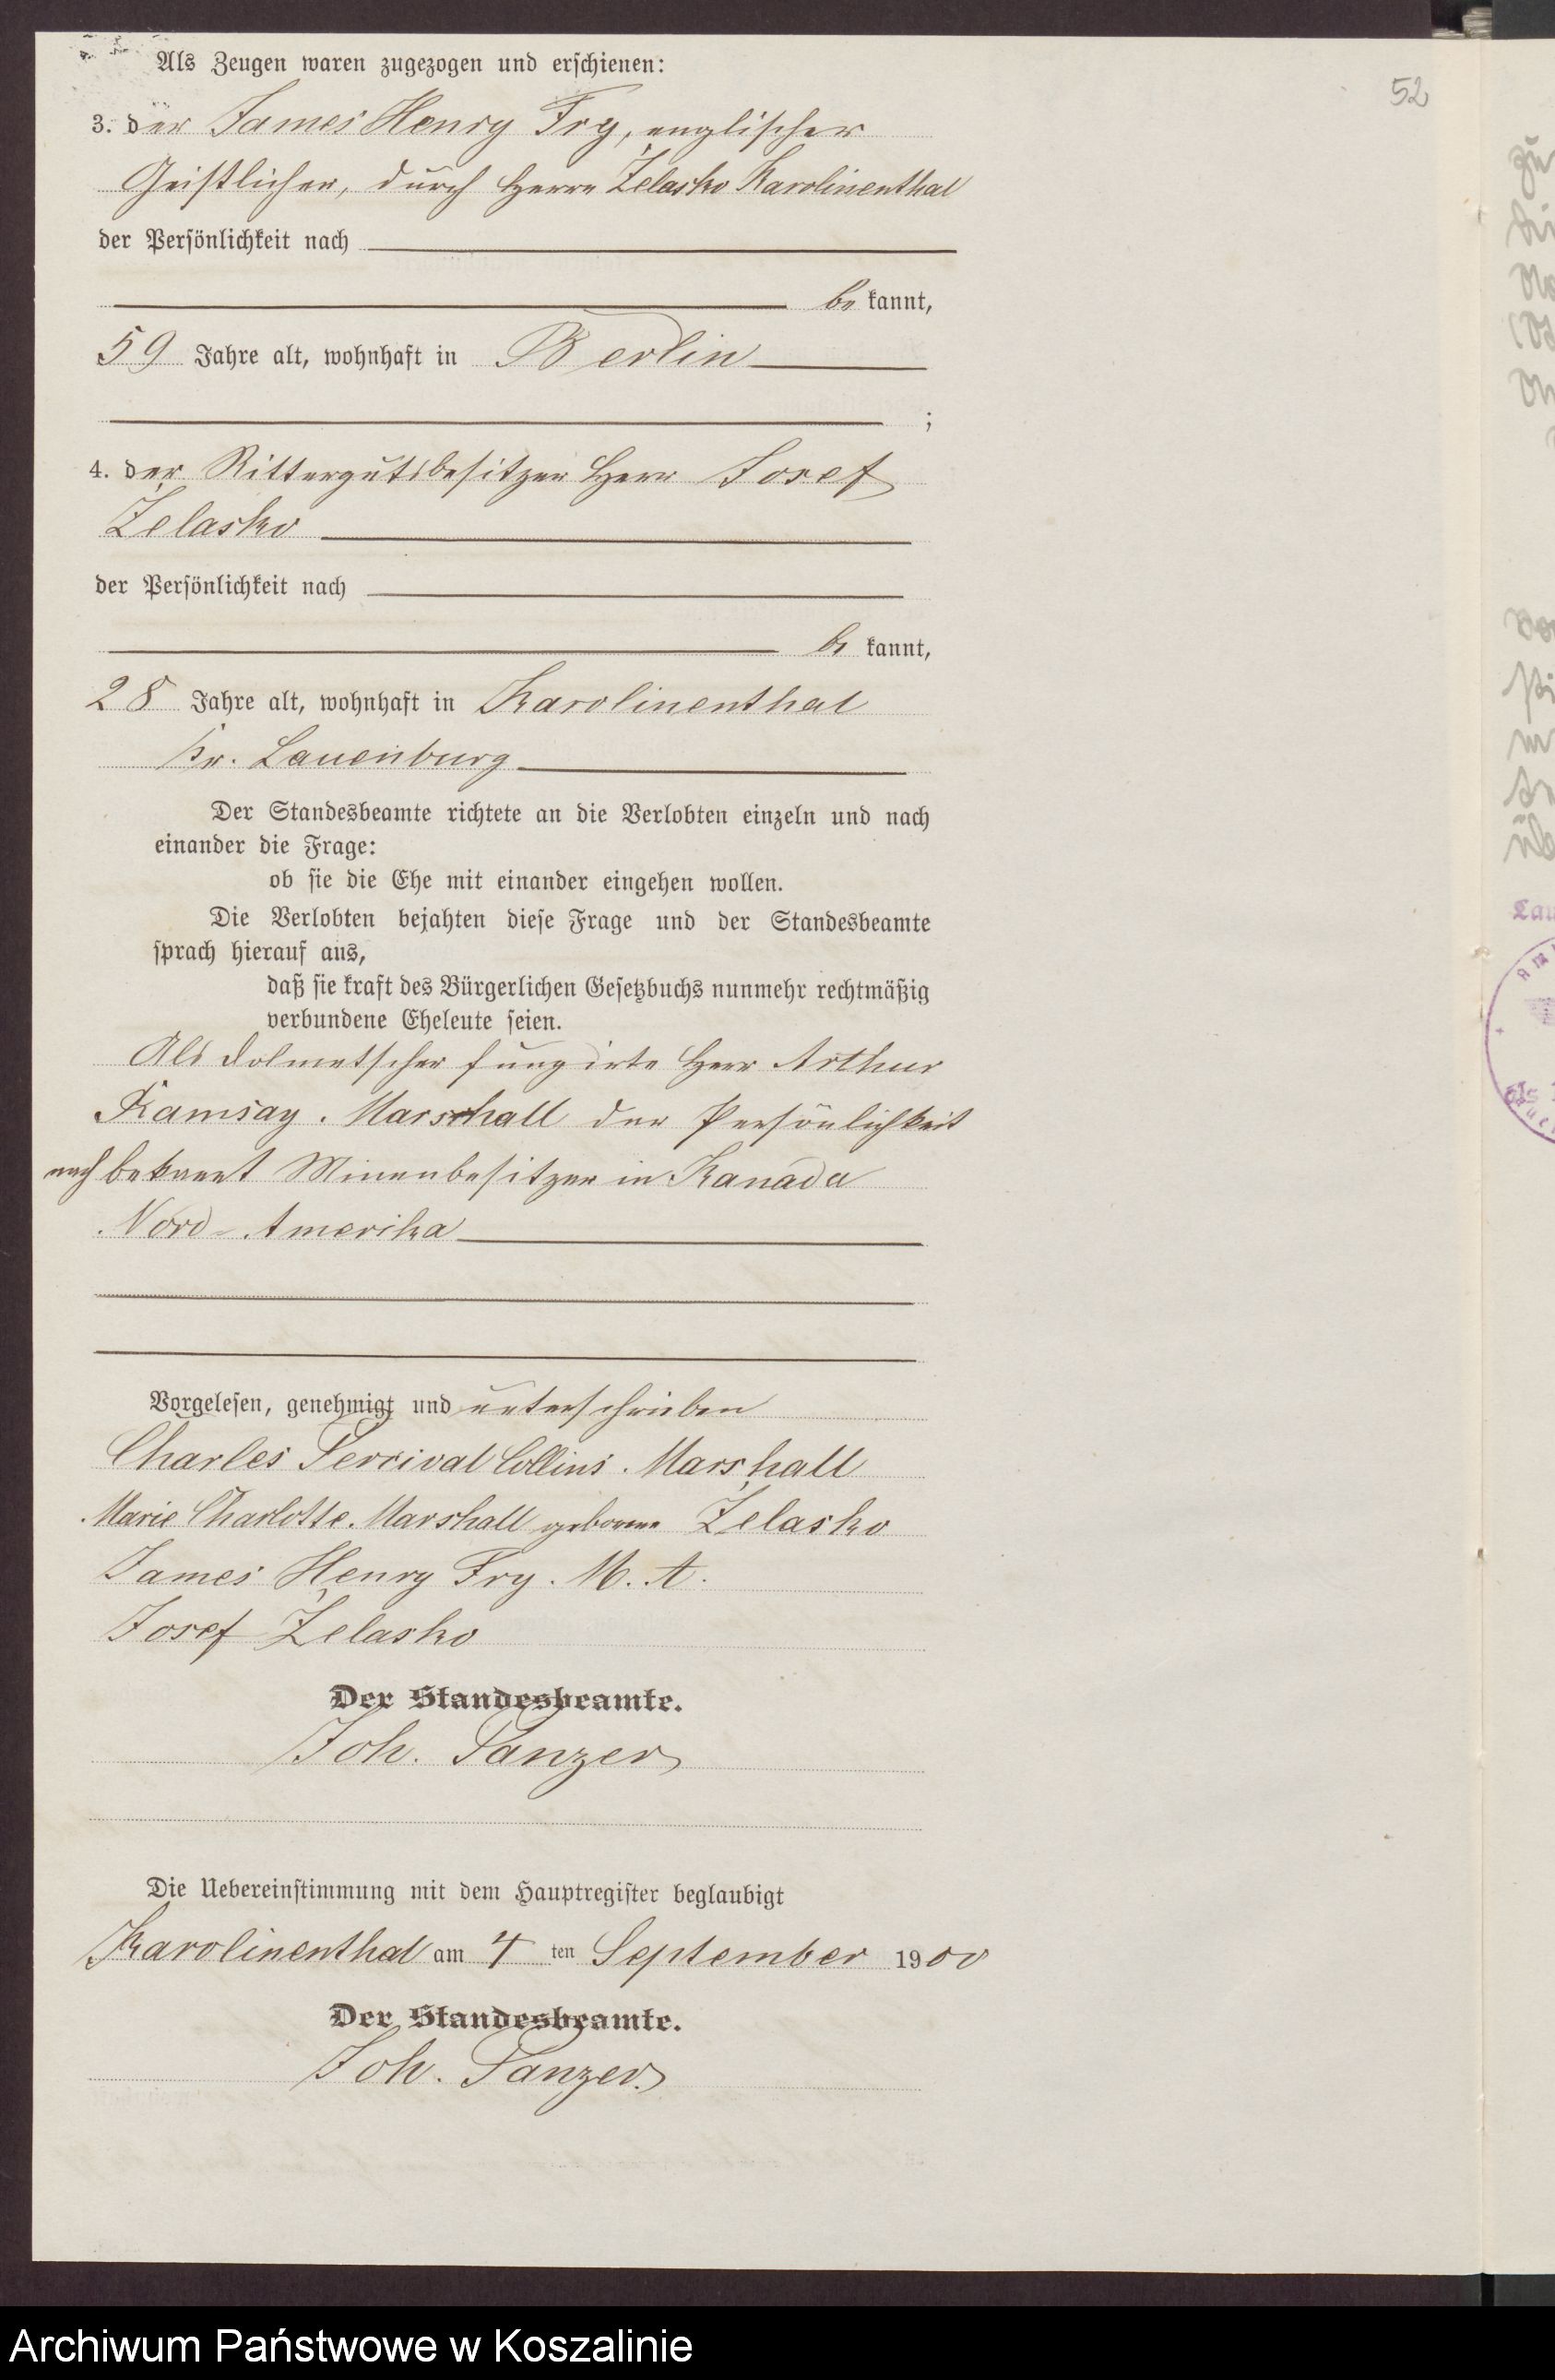 Als Zeugen waren zugezogen und erschienen:
52
3. der James Henry Fry, englischer
Geistlicher, durch Herrn Żelasko Karolinenthal
der Persönlichkeit nach
be kannt,
59 Jahre alt, wohnhaft in Berlin
;
4. der Rittergutsbesitzer Herr Josef
Żelasko
der Persönlichkeit nach
be kannt,
28 Jahre alt, wohnhaft in Karolinenthal
Kr. Lauenburg
Der Standesbeamte richtete an die Verlobten einzeln und nach
einander die Frage:
ob sie die Ehe mit einander eingehen wollen.
Die Verlobten bejahten diese Frage und der Standesbeamte
sprach hierauf aus,
daß sie kraft des Bürgerlichen Gesetzbuchs nunmehr rechtmäßig
verbundene Eheleute seien.
Als Dolmetscher fungirte Herr Arthur
Ramsay Marschall der Persönlichkeit
nach bekannt Minenbesitzer in Kanada
Nord-Amerika
Vorgelesen, genehmigt und unterschrieben
Charles Percival Collins Marshall
Marie Charlotte Marshall geborene Żelasko
James Henry Fry. M. A.
Josef Żelasko
Der Standesbeamte.
Joh. Panzer
Die Uebereinstimmung mit dem Hauptregister beglaubigt
Karolinenthal am 4 ten September 1900
Der Standesbeamte.
Joh. Panzer.
Archiwum Państwowe w Koszalinie